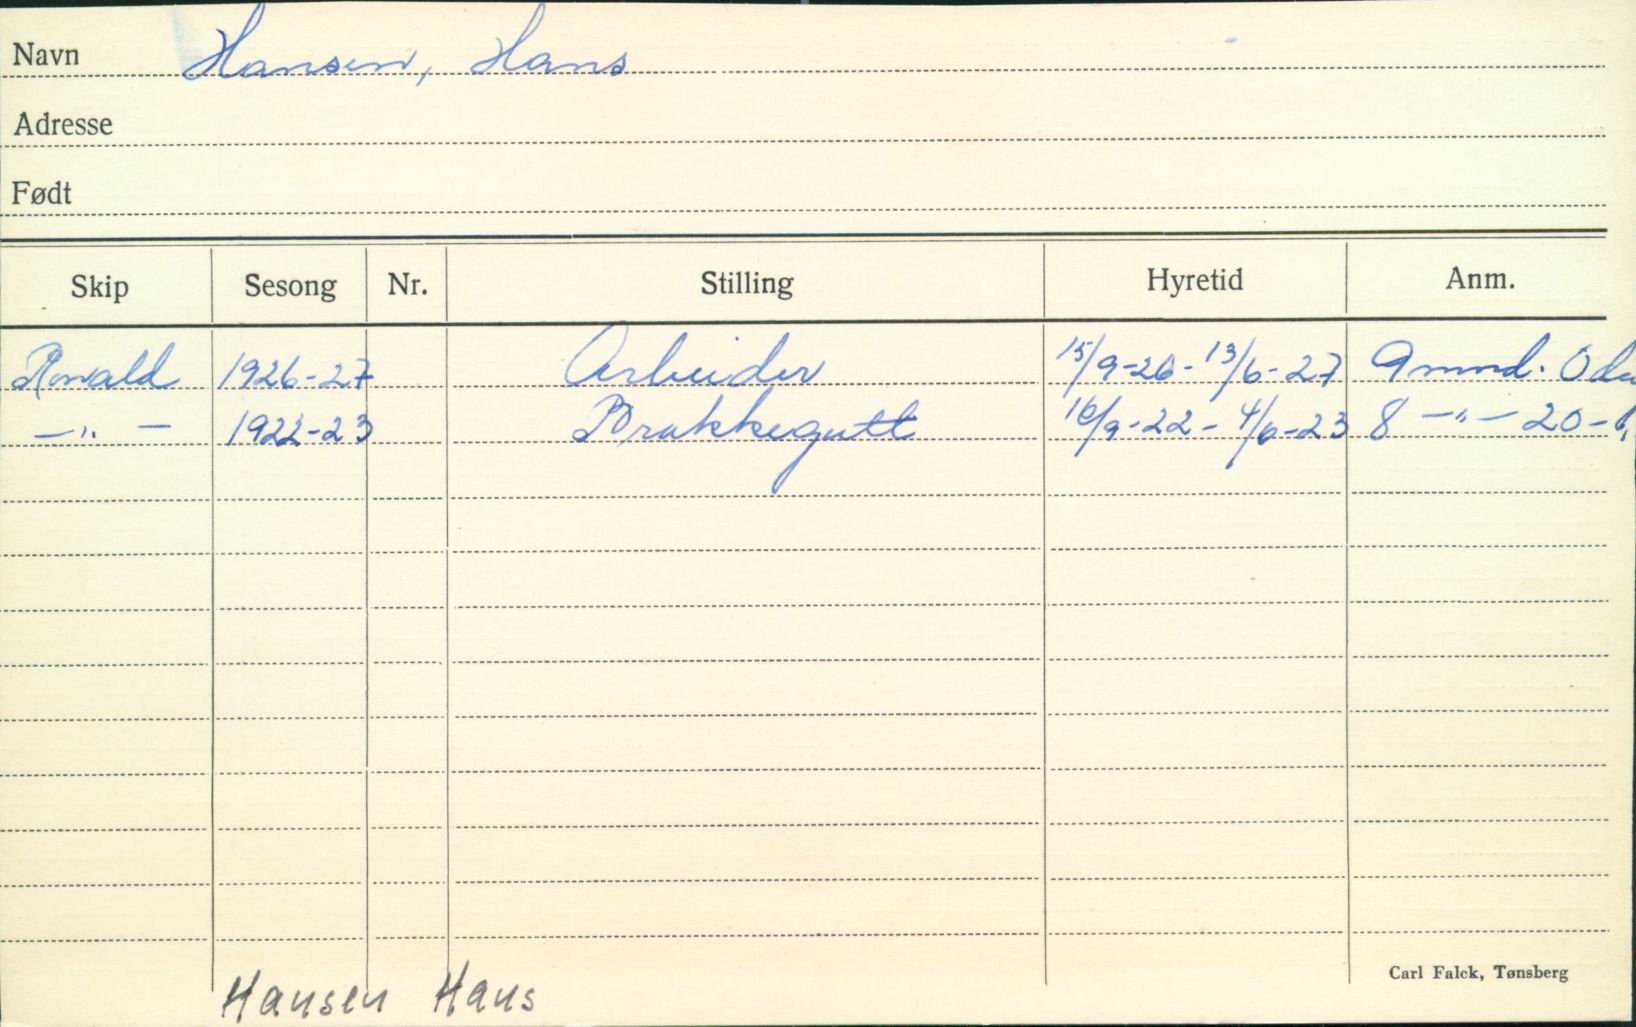 Navn Hansen, Hans
Adresse
Født
Skip Sesong Nr. Stilling Hyretid Anm.
Ronald 1926-27 Arbeider 15/9-26-13/6-27 9 mnd.
—"— 1922-23 Brakkegutt 16/9-22-4/6-23 8 —"— 20-
Hansen Hans
Carl Falck, Tønsberg